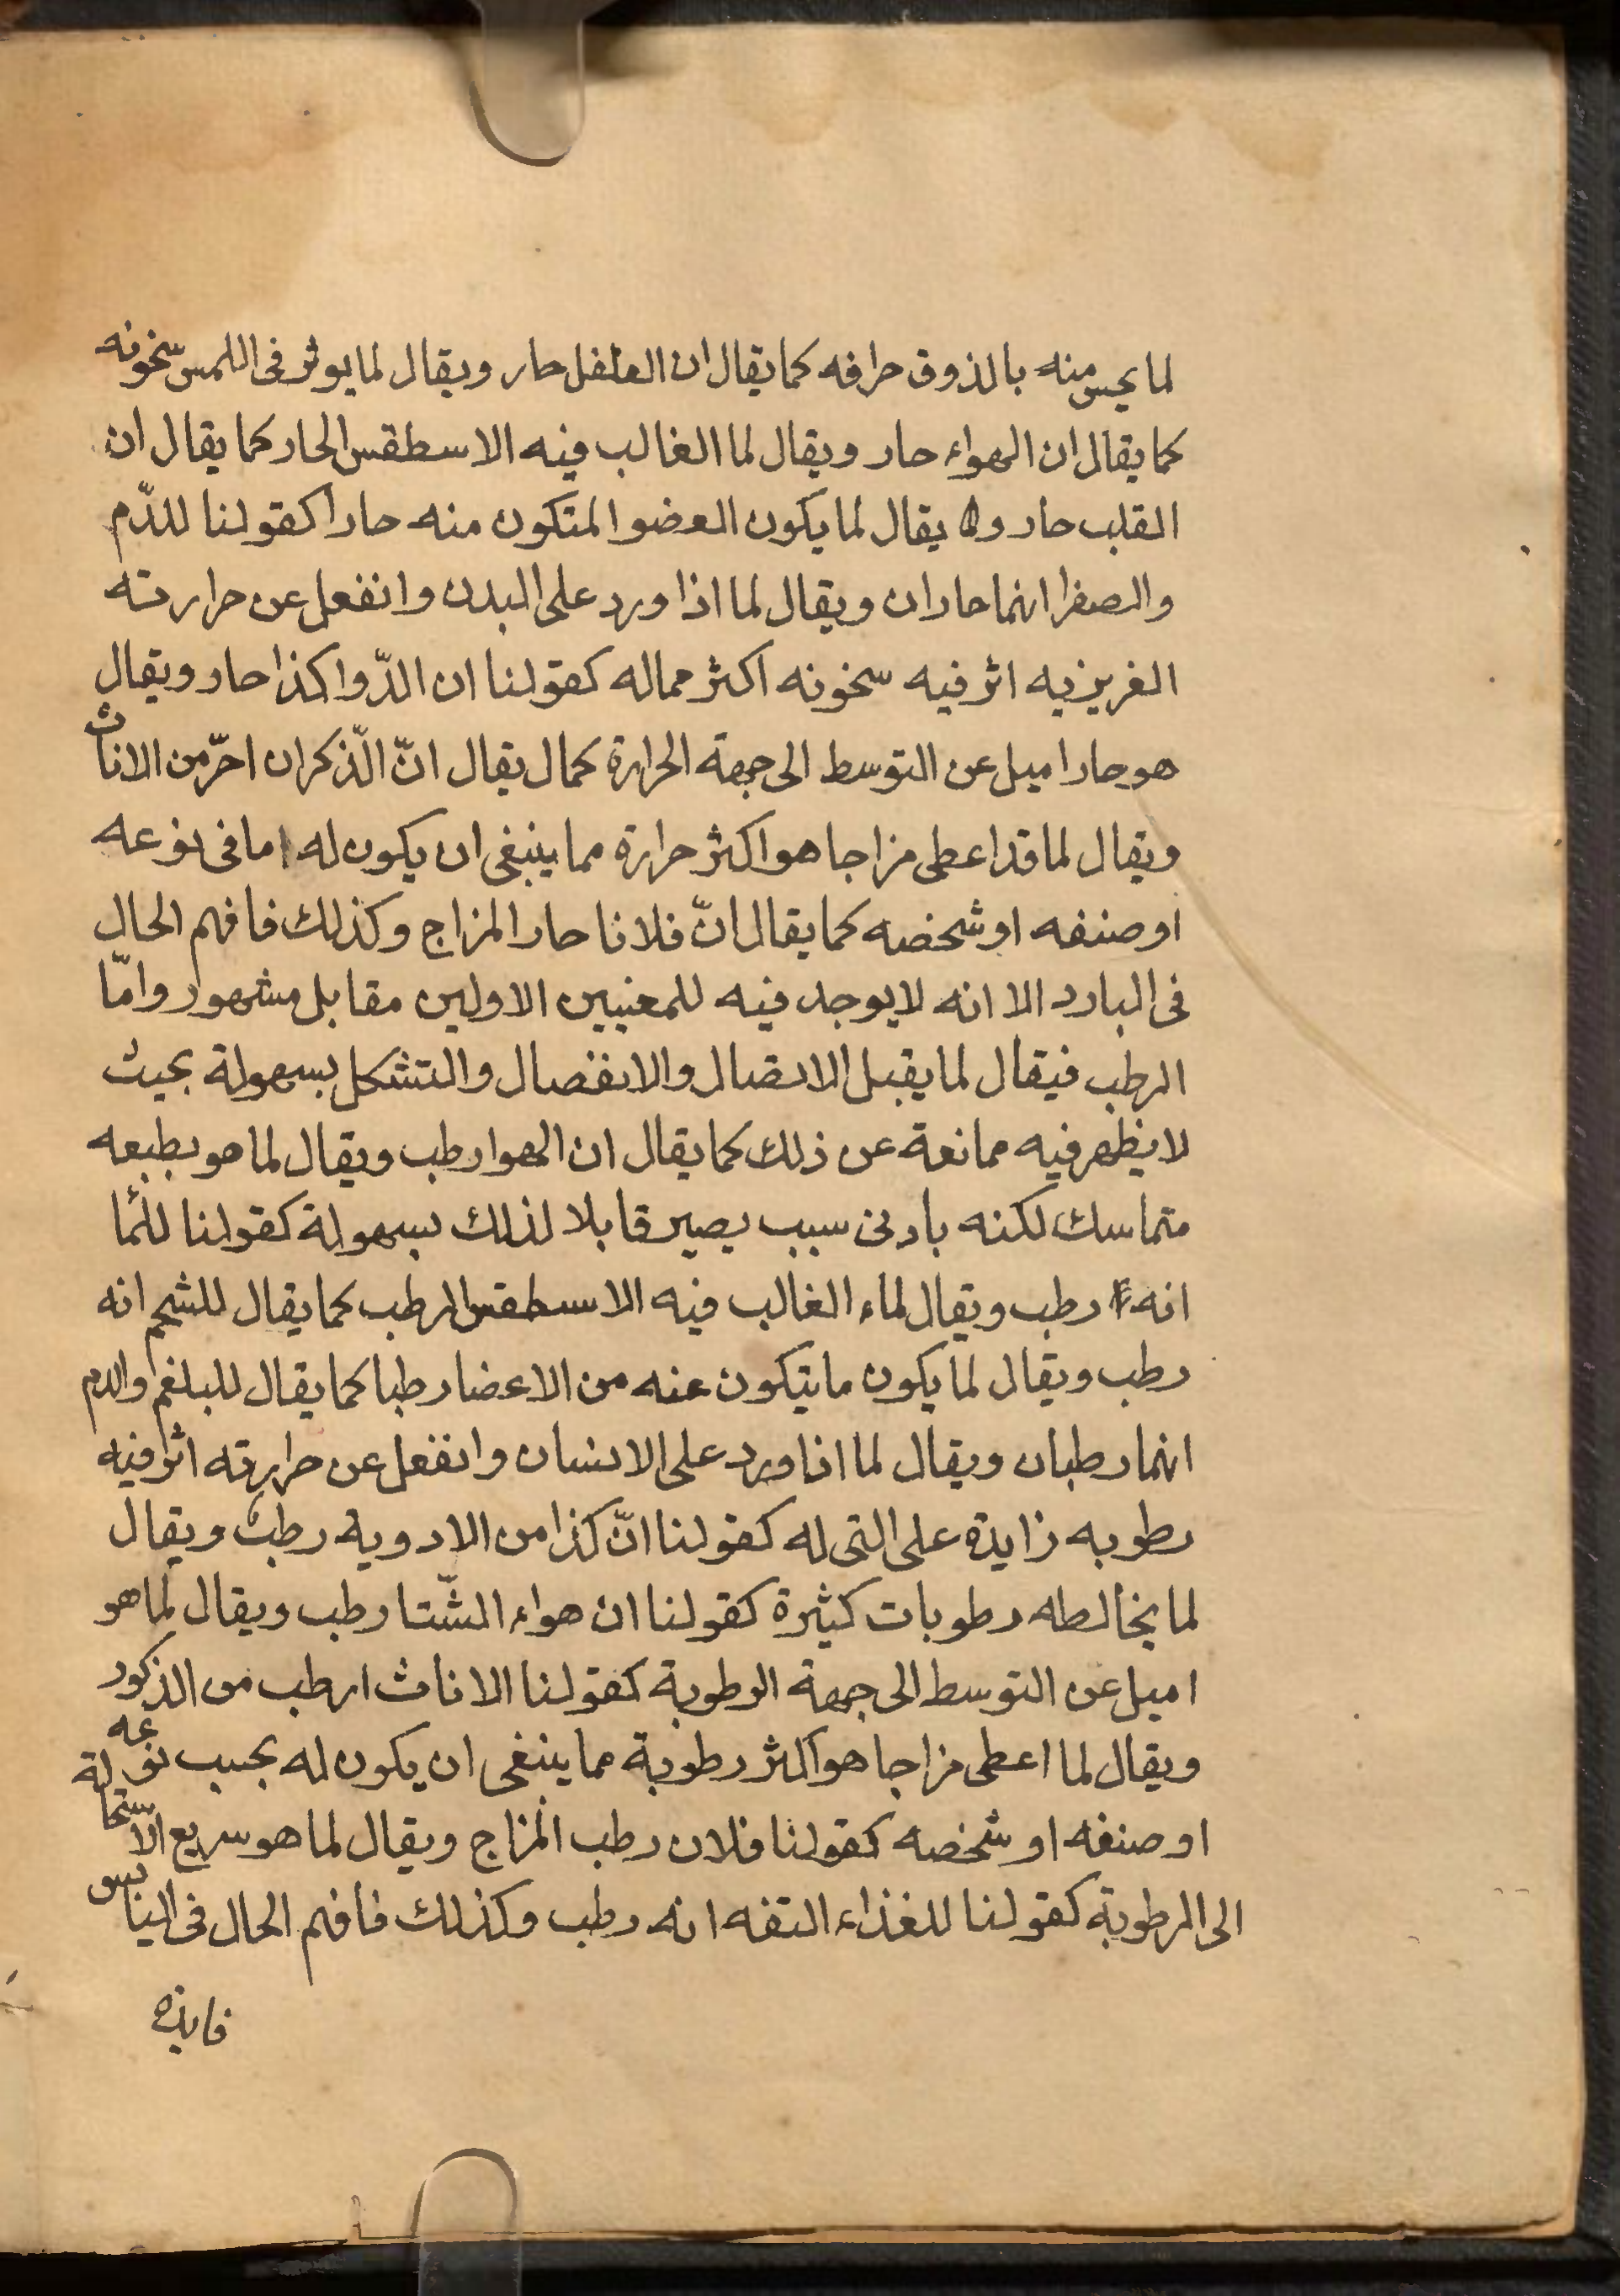 لما يحس منه بالذوق حرافه كما يقال ان الفلفل حار ويقال لما يوثر فى اللمس سخونه
كما يقال ان الهواء حار ويقال لما الغالب فيه الاسطقس الحار كما يقال ان
القلب حار و يقال لما يكون العضو المتكون منه حارا كقولنا للدّم
والصفرا انهما حاران ويقال لما اذا ورد على البدن وانفعل عن حرارته
الغريزيه اثر فيه سخونه اكثر مماله كقولنا ان الدّوا كذا حار ويقال
هو حار اميل عن التوسط الى جهة الحرارة كمال يقال انّ الذّكران احرّ من الاناث
ويقال لما قد اعطى مزاجا هو اكثر حرارة مما ينبغى ان يكون له اما فى نوعه
او صنفه او شخصه كما يقال انّ فلانا حار المزاج وكذلك فافهم الحال
فى البارد الا انه لا يوجد فيه للمعنيين الاولين مقابل مشهور وامّا
الرطب فيقال لما يقبل الاتصال والانفصال والتشكل بسهولة بحيث
لا يظهر فيه ممانعة عن ذلك كما يقال ان الهوا رطب ويقال لما هو بطبعه
متماسك لكنه بادنى سبب يصير قابلا لذلك بسهولة كقولنا للما
انه رطب ويقال لماء الغالب فيه الاسطقس الرطب كما يقال للشحم انه
رطب ويقال لما يكون ما يتكون عنه من الاعضا رطبا كما يقال للبلغم والدم
انهما رطبان ويقال لما اذا ورد على الانسان وانفعل عن حرارته اثر فيه
رطوبه زايدة على التى له كقولنا انّ كذا من الادوية رطب ويقال
لما يخالطه رطوبات كثيرة كقولنا ان هواء الشّتا رطب ويقال لما هو
اميل عن التوسط الى جهة الرطوبة كقولنا الاناث ارطب من الذكور
ويقال لما اعطى مزاجا هو اكثر رطوبة مما ينبغى ان يكون له بحسب نوعه
او صنفه او شخصه كقولنا فلان رطب المزاج ويقال لما هو سريع الاستحالة
الى الرطوبة كقولنا للغذاء التفه انه رطب وكذلك فافهم الحال فى اليابس
فايده